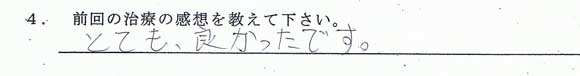 4. 前回の治療の感想を教えて下さい。
とても、良かったです。